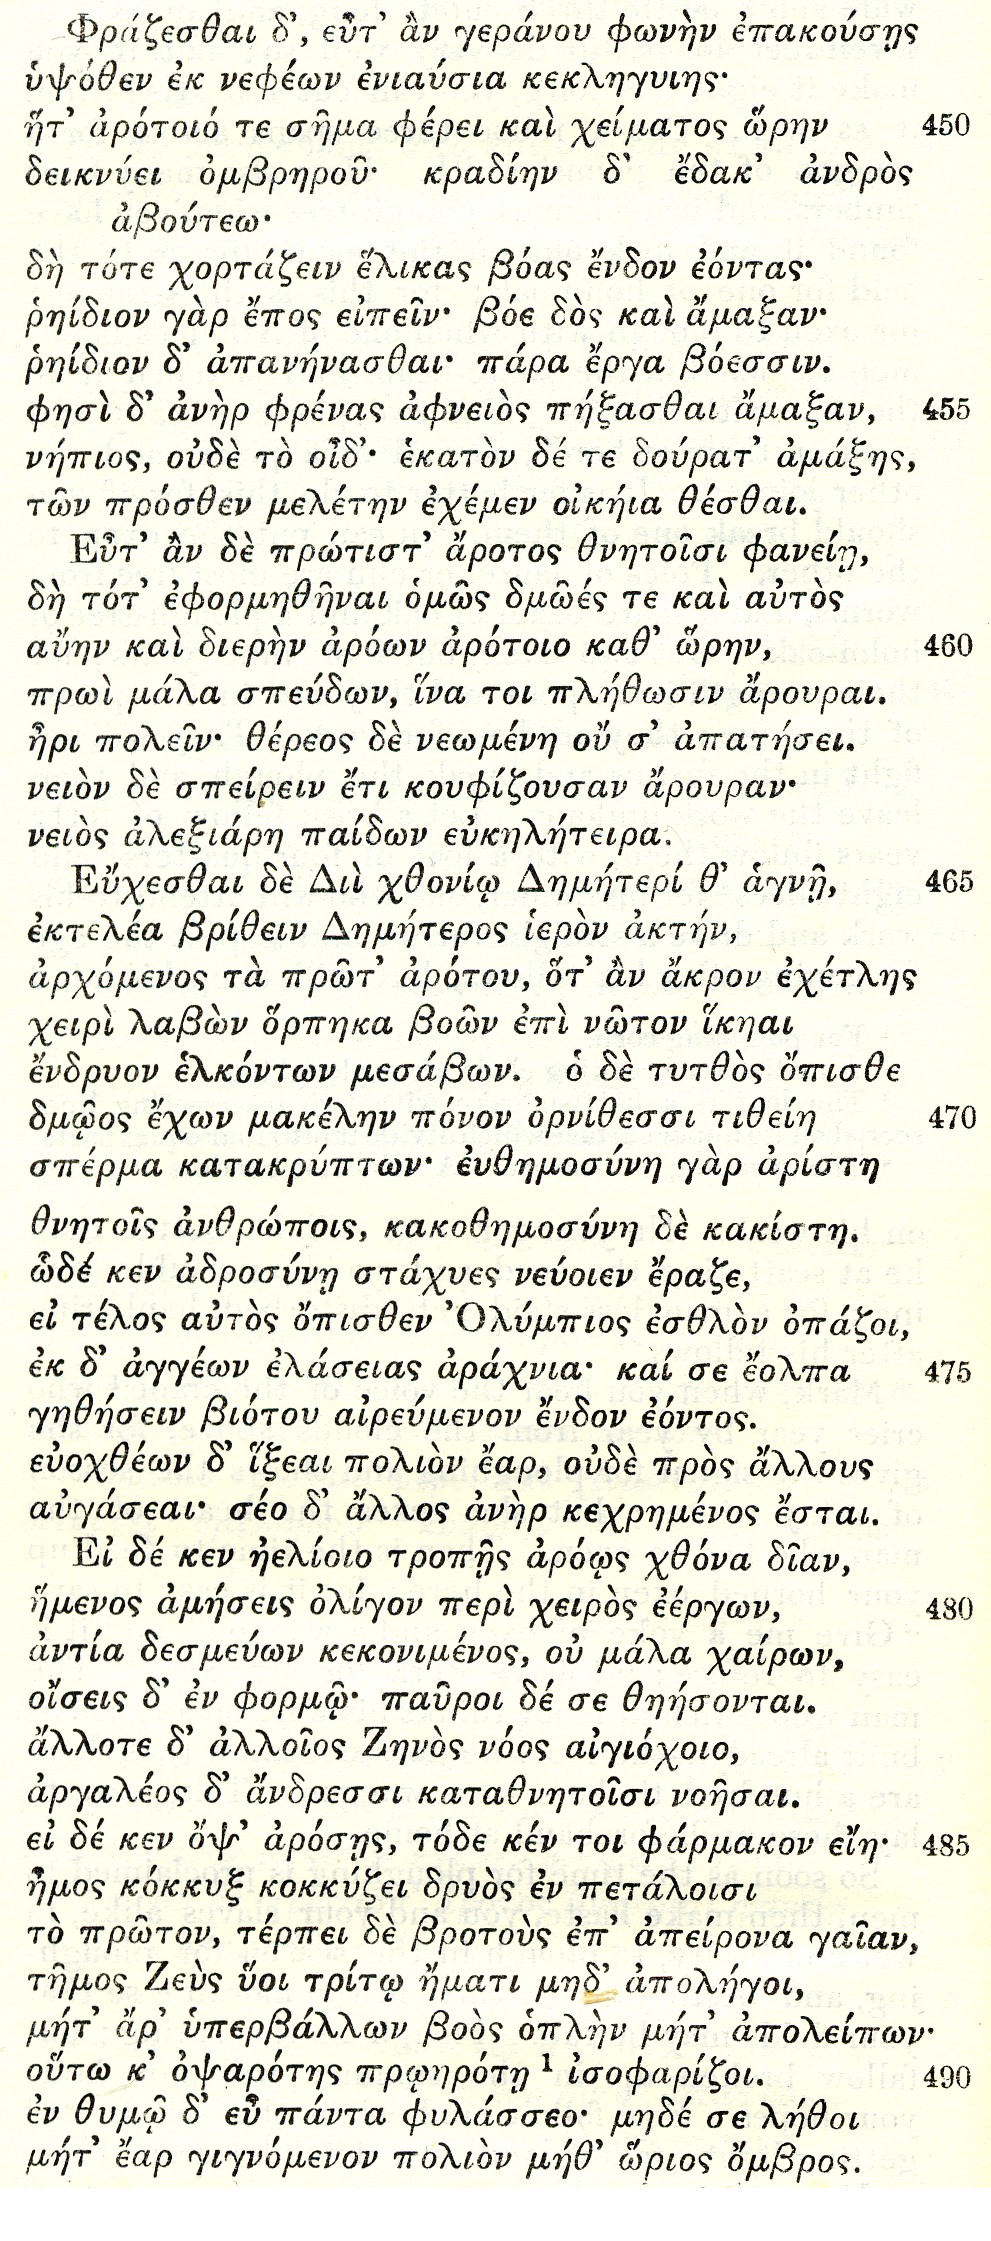 Φράζεσθαι δ’, εὖτ’ ἂν γεράνου φωνὴν ἐπακούσῃς
ὑψόθεν ἐκ νεφέων ἐνιαύσια κεκληγυιης·
ἥτ’ ἀρότοιό τε σῆμα φέρει καὶ χείματος ὥρην 450
δεικνύει ὀμβρηροῦ· κραδίην δ’ ἔδακ’ ἀνδρὸς
ἀβούτεω·
δὴ τότε χορτάζειν ἕλικας βόας ἔνδον ἐόντας·
ῥηίδιον γὰρ ἔπος εἰπεῖν· βόε δὸς καὶ ἄμαξαν·
ῥηίδιον δ’ ἀπανήνασθαι· πάρα ἔργα βόεσσιν.
φησὶ δ’ ἀνὴρ φρένας ἀφνειὸς πήξασθαι ἄμαξαν, 455
νήπιος, οὐδὲ τὸ οἶδ’· ἑκατὸν δέ τε δούρατ’ ἀμάξης,
τῶν πρόσθεν μελέτην ἐχέμεν οἰκήια θέσθαι.
Εὖτ’ ἂν δὲ πρώτιστ’ ἄροτος θνητοῖσι φανείῃ,
δὴ τότ’ ἐφορμηθῆναι ὁμῶς δμῶές τε καὶ αὐτὸς
αὔην καὶ διερὴν ἀρόων ἀρότοιο καθ’ ὥρην, 460
πρωὶ μάλα σπεύδων, ἵνα τοι πλήθωσιν ἄρουραι.
ἦρι πολεῖν· θέρεος δὲ νεωμένη οὔ σ’ ἀπατήσει.
νειὸν δὲ σπείρειν ἔτι κουφίζουσαν ἄρουραν·
νειὸς ἀλεξιάρη παίδων εὐκηλήτειρα.
Εὔχεσθαι δὲ Διὶ χθονίῳ Δημήτερί θ’ ἁγνῇ, 465
ἐκτελέα βρίθειν Δημήτερος ἱερὸν ἀκτήν,
ἀρχόμενος τὰ πρῶτ’ ἀρότου, ὅτ’ ἂν ἄκρον ἐχέτλης
χειρὶ λαβὼν ὅρπηκα βοῶν ἐπὶ νῶτον ἵκηαι
ἔνδρυον ἑλκόντων μεσάβων. ὁ δὲ τυτθὸς ὄπισθε
δμῷος ἔχων μακέλην πόνον ὀρνίθεσσι τιθείη 470
σπέρμα κατακρύπτων· ἐυθημοσύνη γὰρ ἀρίστη
θνητοῖς ἀνθρώποις, κακοθημοσύνη δὲ κακίστη.
ὧδέ κεν ἁδροσύνῃ στάχυες νεύοιεν ἔραζε,
εἰ τέλος αὐτὸς ὄπισθεν Ὀλύμπιος ἐσθλὸν ὀπάζοι,
ἐκ δ’ ἀγγέων ἐλάσειας ἀράχνια· καί σε ἔολπα 475
γηθήσειν βιότου αἰρεύμενον ἔνδον ἐόντος.
εὐοχθέων δ’ ἵξεαι πολιὸν ἔαρ, οὐδὲ πρὸς ἄλλους
αὐγάσεαι· σέο δ’ ἄλλος ἀνὴρ κεχρημένος ἔσται.
Εἰ δέ κεν ἠελίοιο τροπῇς ἀρόῳς χθόνα δῖαν,
ἥμενος ἀμήσεις ὀλίγον περὶ χειρὸς ἐέργων, 480
ἀντία δεσμεύων κεκονιμένος, οὐ μάλα χαίρων,
οἴσεις δ’ ἐν φορμῷ· παῦροι δέ σε θηήσονται.
ἄλλοτε δ’ ἀλλοῖος Ζηνὸς νόος αἰγιόχοιο,
ἀργαλέος δ’ ἄνδρεσσι καταθνητοῖσι νοῆσαι.
εἰ δέ κεν ὄψ’ ἀρόσῃς, τόδε κέν τοι φάρμακον εἴη· 485
ἦμος κόκκυξ κοκκύζει δρυὸς ἐν πετάλοισι
τὸ πρῶτον, τέρπει δὲ βροτοὺς ἐπ’ ἀπείρονα γαῖαν,
τῆμος Ζεὺς ὕοι τρίτῳ ἤματι μηδ’ ἀπολήγοι,
μήτ’ ἄρ’ ὑπερβάλλων βοὸς ὁπλὴν μήτ’ ἀπολείπων·
οὕτω κ’ ὀψαρότης πρῳηρότῃ ¹ ἰσοφαρίζοι. 490
ἐν θυμῷ δ’ εὖ πάντα φυλάσσεο· μηδέ σε λήθοι
μήτ’ ἔαρ γιγνόμενον πολιὸν μήθ’ ὥριος ὄμβρος.